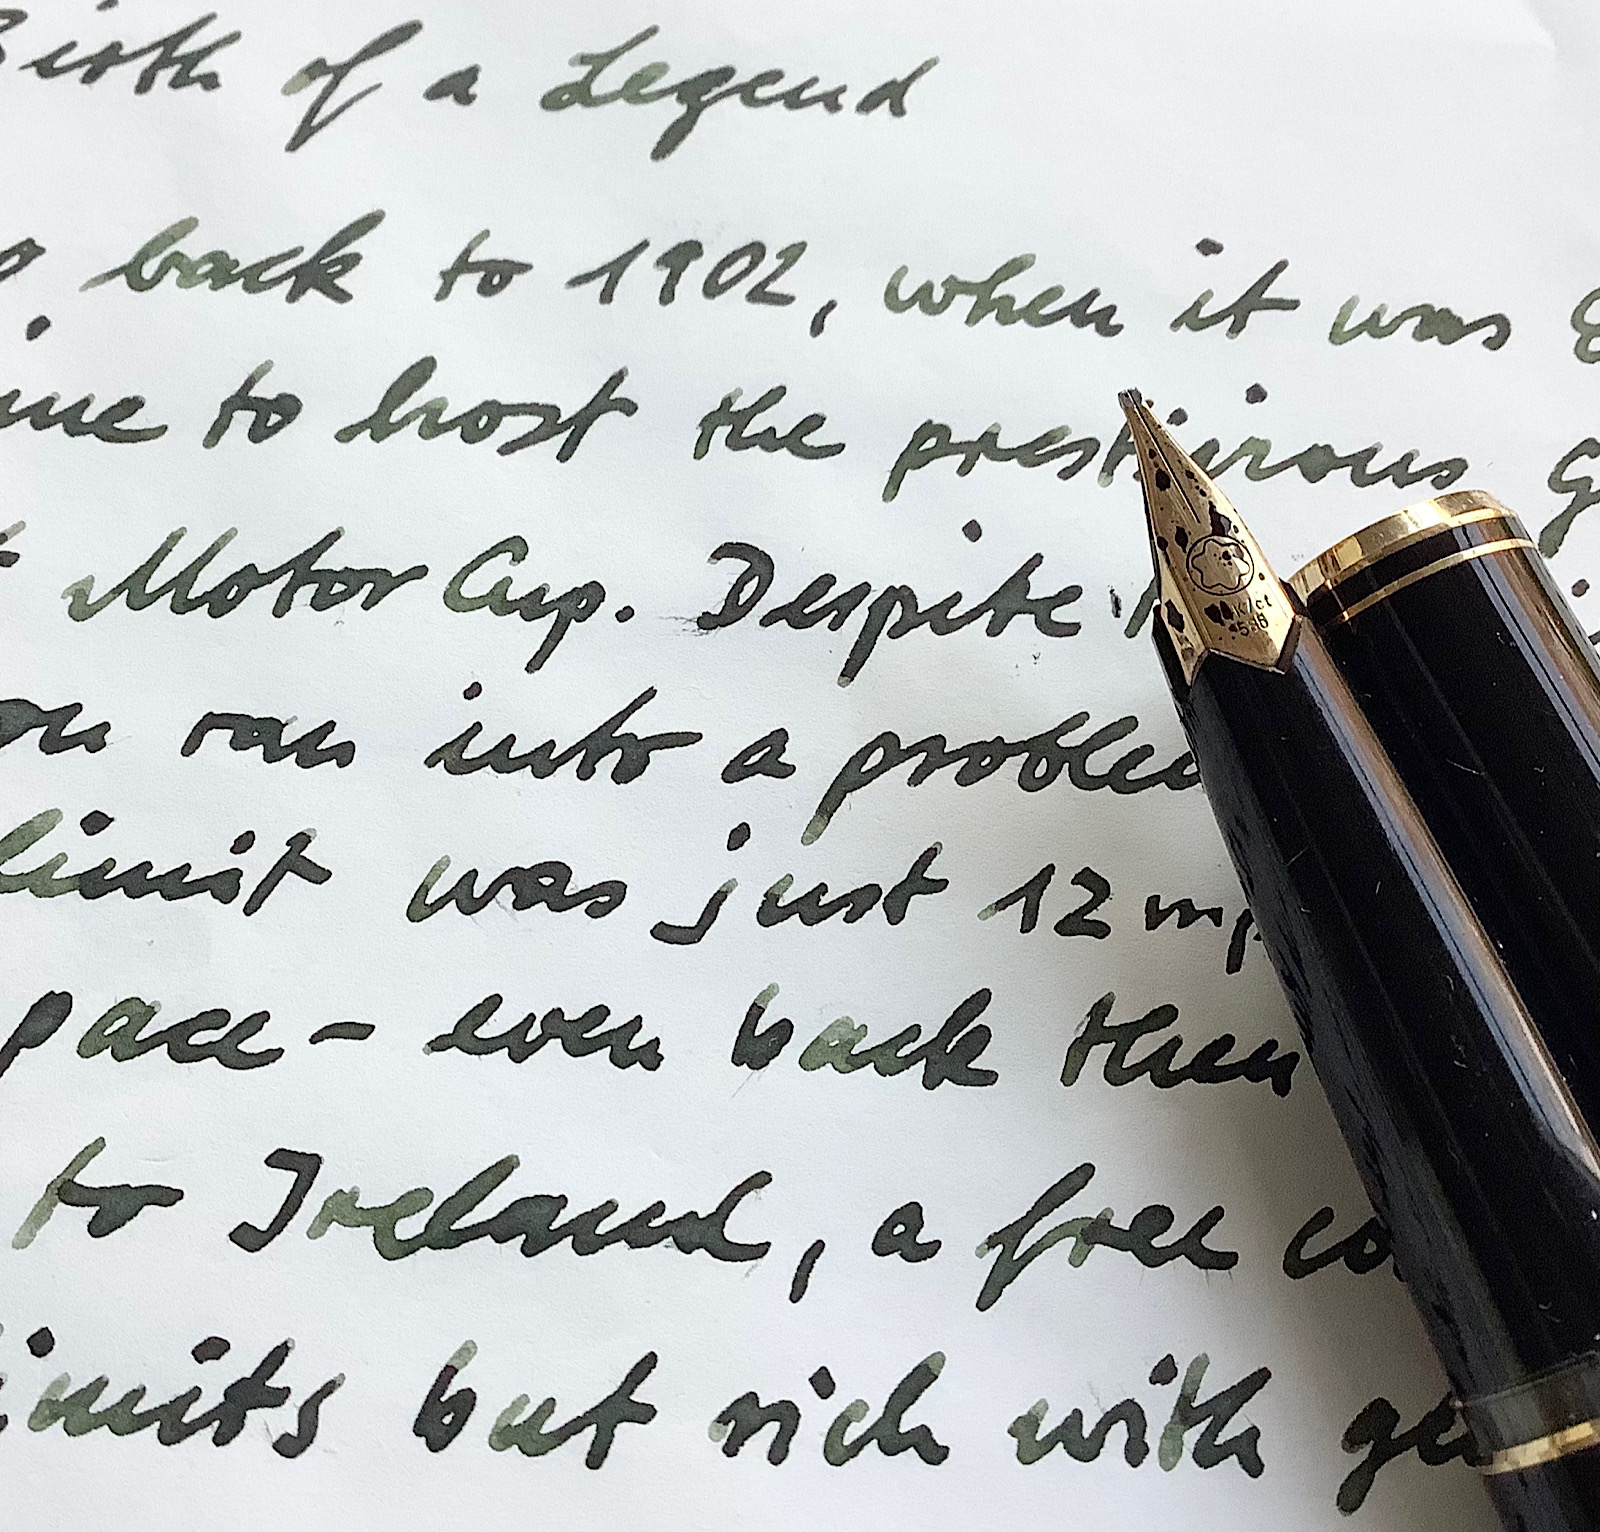 Birth of a Legend
back to 1902, when it was
to host the prestigious
Motor Cup. Despite
ran into a problem
limit was just 12 mp
pace - even back then
to Ireland, a free co
limits but rich with ge
585